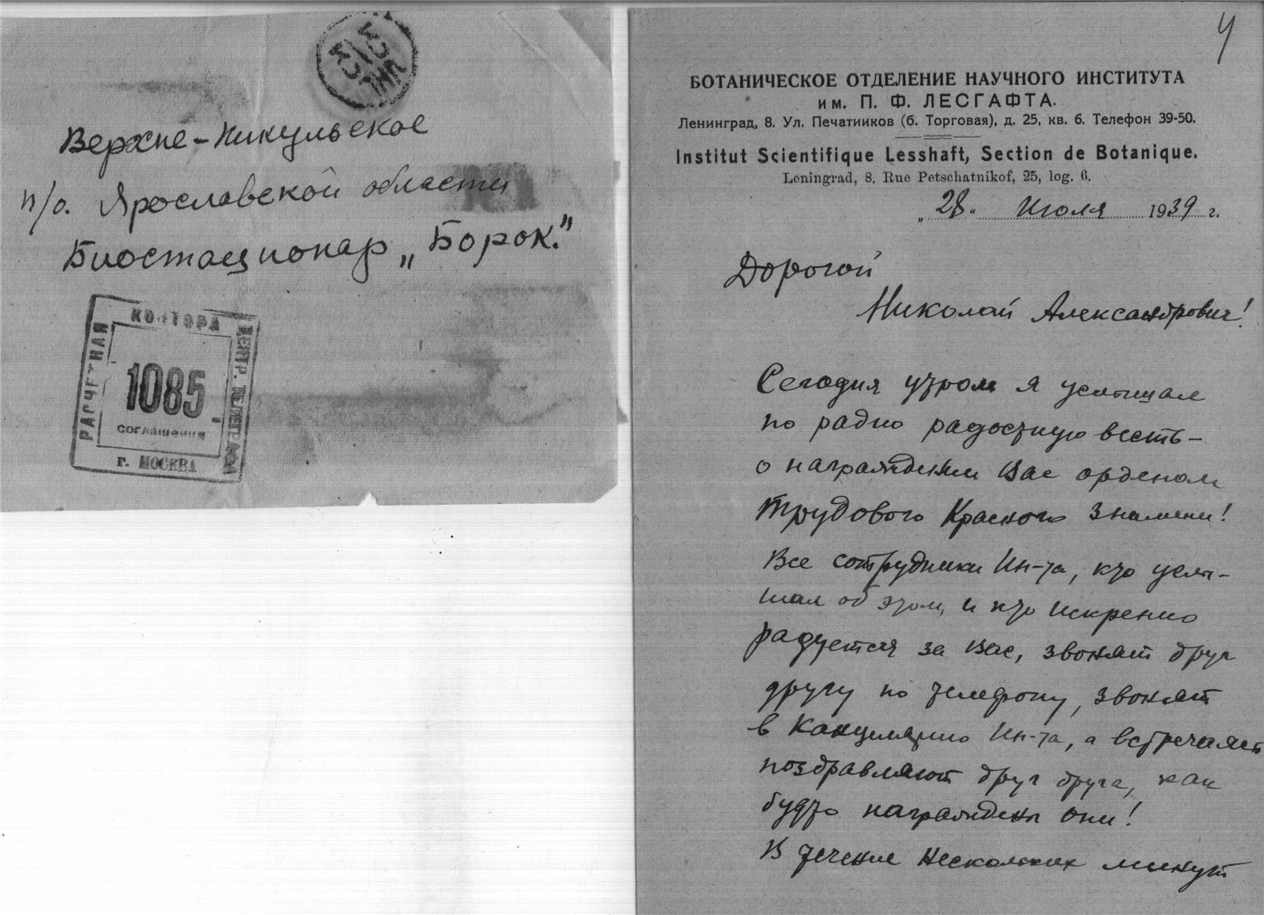 Верхне-Никульское
п/о. Ярославской области
Биостационар „Борок."
РАСЧЕТНАЯ
КОНТОРА
ЦЕНТР. ТЕЛЕГРАФА
1085
СОГЛАШЕНИЯ
г. МОСКВА
4
БОТАНИЧЕСКОЕ ОТДЕЛЕНИЕ НАУЧНОГО ИНСТИТУТА
им. П. Ф. ЛЕСГАФТА.
Ленинград, 8. Ул. Печатников (б. Торговая), д. 25, кв. 6. Телефон 39-50.
Institut Scientifique Lesshaft, Section de Botanique.
Leningrad, 8. Rue Petschatnikof, 25, log. 6.
„28" Июля 1939 г.
Дорогой
Николай Александрович!
Сегодня утром я услышал
по радио радостную весть –
о награждении Вас орденом
Трудового Красного Знамени!
Все сотрудники Ин-та, кто услы-
шал об этом, и кто искренно
радуется за Вас, звонят друг
другу по телефону, звонят
в Канцелярию Ин-та, а встречаясь
поздравляют друг друга, как
будто награждены они!
В течение нескольких минут